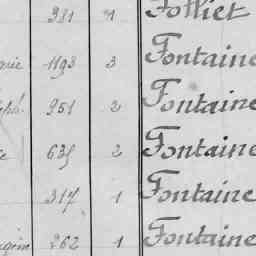 981 1 Folliet
1193 3 Fontaine
951 2 Fontaine
635 2 Fontaine
317 1 Fontaine
362 1 Fontaine